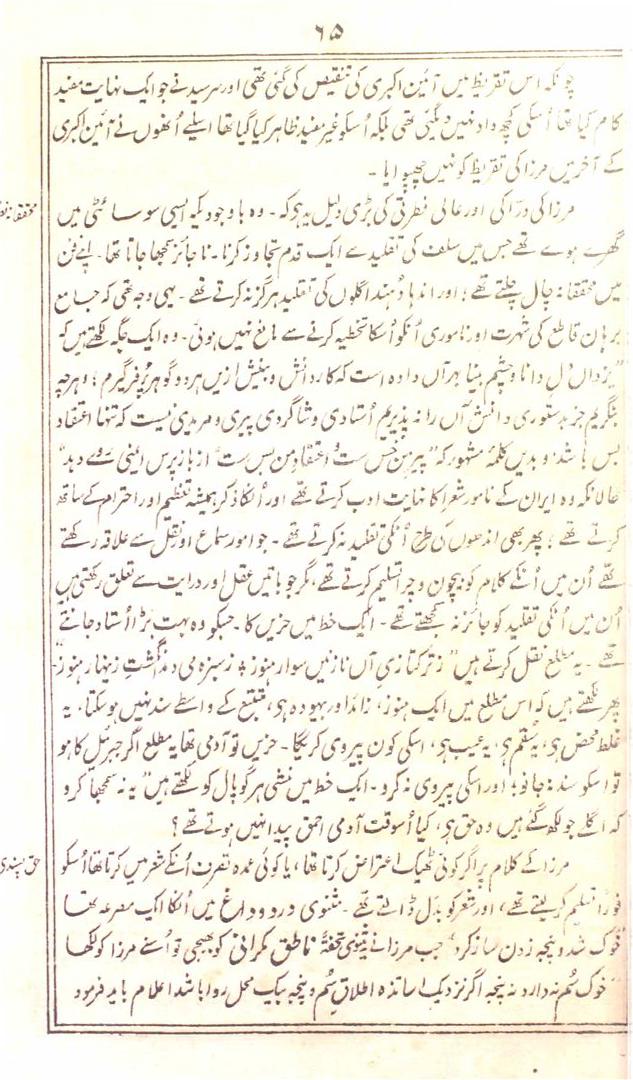 ۶۵
چونکہ اس تقریظ میں آئین اکبری کی تنقیص کی گئی تھی اور سرسید نے جو ایک نہایت مفید
کام کیا تھا اُسکی کچھ داد نہیں دیگئی تھی بلکہ اُسکو غیر مفید ظاہر کیا گیا تھا اسلیے اُنھوں نے آئین اکبری
کے آخر میں مرزا کی تقریظ کو نہیں چھپوایا -
مرزا کی درّاکی اور عالی فطرتی کی بڑی دلیل یہ ہے کہ - وہ باوجود یکہ ایسی سوسائٹی میں
گھرے ہوے تھے جس میں سلف کی تقلید سے ایک قدم تجاوز کرنا - ناجائز سمجھا جاتا تھا - اپنے فن
میں محققانہ چال چلتے تھے ؛ اور اندھا دھند اگلوں کی تقلید ہرگز نہ کرتے تھے - یہی وجہ تھی کہ جامع
برہان قاطع کی شہرت اور ناموری اُنکو اُسکا تخطیہ کرنے سے مانع نہیں ہوئی - وہ ایک جگہ لکھتے ہیں کہ
”یزداں دلِ دانا و چشم بینا بہر آں دادہ است کہ کار دانش و بینش ازیں ہر دو گوہر پُرفر گیرم ؛ و ہرچہ
بنگریم جز بدستوری دانش آں را نہ پذیریم اُستادی و شاگردی پیری و مریدی نیست کہ تنہا اعتقاد
بس باشد و بدیں کلمہٴ مشہور کہ ”پیرِ من خس ست و اعتقادِ من بس ست“ از بازپرس ایمنی روے دہد“
حالانکہ وہ ایران کے نامور شعرا کا نہایت ادب کرتے تھے اور اُنکا ذکر ہمیشہ تعظیم اور احترام کے ساتھ
کرتے تھے ؛ پھر بھی اندھوں کی طرح اُنکی تقلید نہ کرتے تھے - جو امور سماع اور نقل سے علاقہ رکھتے
تھے اُن میں اُنکے کلام کو بیچون و چرا تسلیم کرتے تھے ، مگر جو باتیں عقل اور درایت سے تعلق رکھتی ہیں
اُن میں اُنکی تقلید کو جائز نہ سمجھتے تھے - ایک خط میں حزیں کا - جسکو وہ بہت بڑا اُستاد جانتے
تھے - یہ مطلع نقل کرتے ہیں ” زترکتازیِ آں نازنیں سوار ہنوز ٭ ز سبزہ می دمد انگشتِ زینہار ہنوز“
پھر لکھتے ہیں کہ اس مطلع میں ایک ہنوز ، زائد اور بیہودہ ہی ، متبع کے واسطے سند نہیں ہوسکتا ، یہ
غلط محض ہی ، یہ سُقم ہی ، یہ عیب ہی ، اسکی کون پیروی کریگا - حزیں تو آدمی تھا یہ مطلع اگر جبرئیل کا ہو
تو اسکو سند نہ جانو ؛ اور اسکی پیروی نہ کرو - ایک خط میں منشی ہرگوپال کو لکھتے ہیں ” یہ نہ سمجھا کرو
کہ اگلے جو لکھ گئے ہیں وہ حق ہی ، کیا اُسوقت آدمی احمق پیدا نہیں ہوتے تھے ؟
حق پسندی
مرزا کے کلام پر اگر کوئی ٹھیک اعتراض کرتا تھا ، یا کوئی عمدہ تصرف اُنکے شعر میں کرتا تھا اُسکو
فوراً تسلیم کرلیتے تھے ، اور شعر کو بدل ڈالتے تھے - مثنوی درد و داغ میں اُنکا ایک مصرعہ تھا
”خوک شد و پنجہ زدن ساز کرد“ جب مرزا نے یہ مثنوی تحفۃً ناطق مکرانی کو بھیجی تو اُسنے مرزا کو لکھا
”خوک سُم دارد نہ پنجہ اگر نزدیک اساتذہ اطلاقِ سُم و پنجہ بیک محل روا باشد اعلام باید فرمود